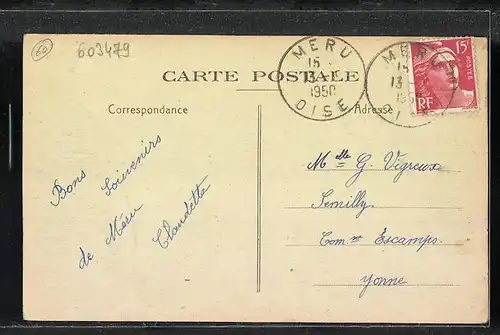 60
603479
CARTE POSTALE
Correspondance
Adresse
MERU
15
13
1950
OISE
MERU
15
13
OI
15F
POSTES
RF
Bons Souvenirs
de Méru
Claudette
Mlle G. Vigreux
Semilly
Comne Escamps
Yonne